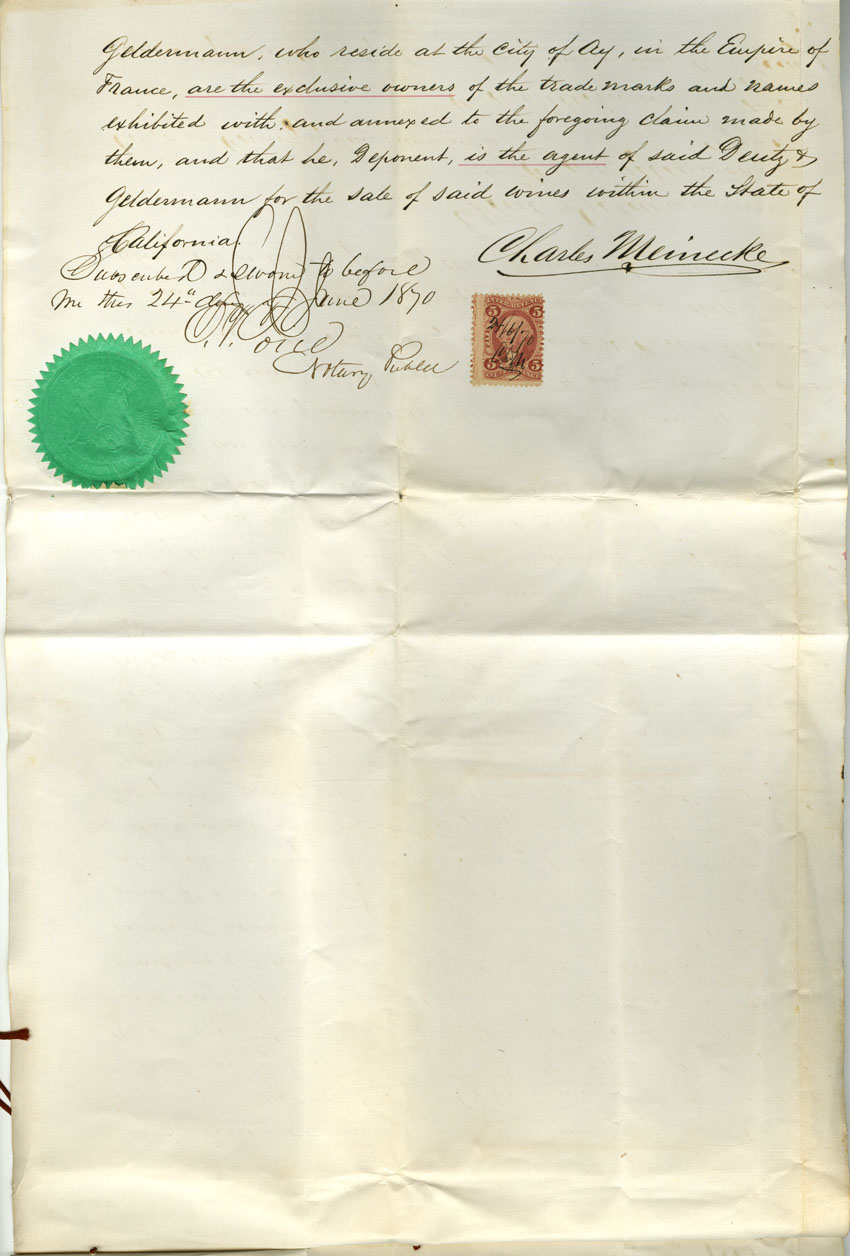 Geldermann, who reside at the City of Ay, in the Empire of
France, are the exclusive owners of the trade marks and names
exhibited with, and annexed to the foregoing claim made by
them, and that he, Deponent, is the agent of said Deutz &
Geldermann for the sale of said wines within the State of
California.
Charles Meinecke
Subscribed & sworn to before
me this 24" day of June 1870
Notary Public
5 5
5 5